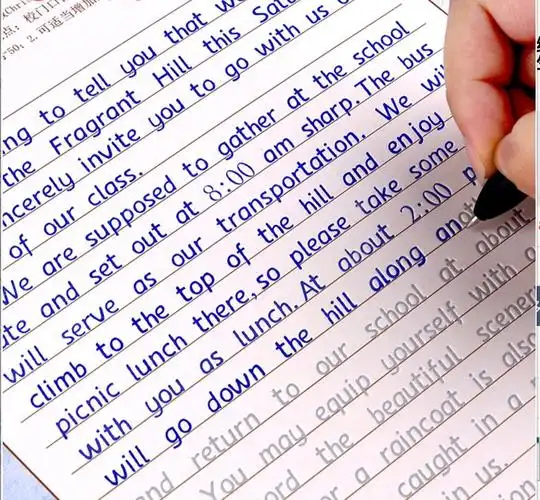 点：校门口
50；2.可适当增加
ng to tell you that w
the Fragrant Hill this Satu
ncerely invite you to go with us
of our class.
We are supposed to gather at the school
te and set out at 8:00 am sharp.The bus
will serve as our transportation. We wil
climb to the top of the hill and enjoy
picnic lunch there,so please take some
with you as lunch.At about 2:00 p
will go down the hill along ano
and return to our school at about
You may equip yourself with a
ord the beautiful scener
r a raincoat is also
caught in a r
in us.